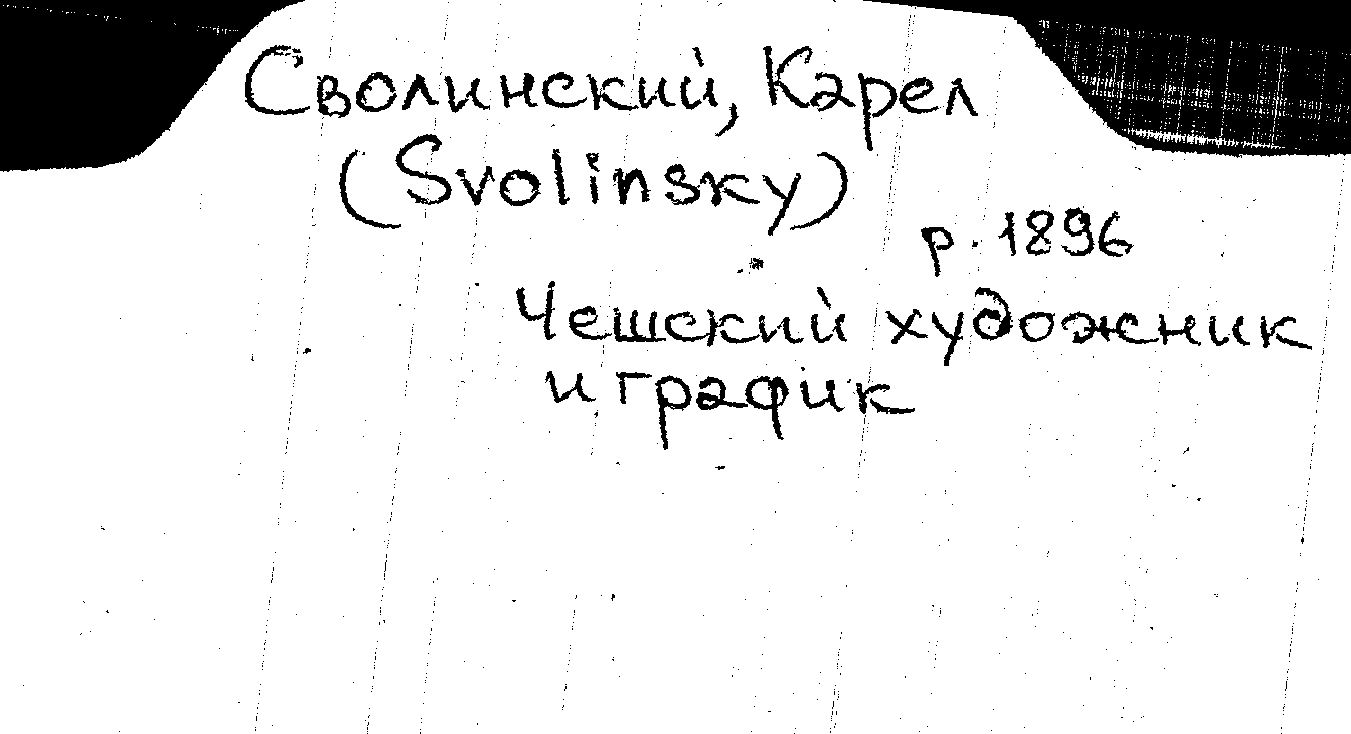 Сволинский, Карел
(Svolinsky)
р. 1896
Чешский художник
и график